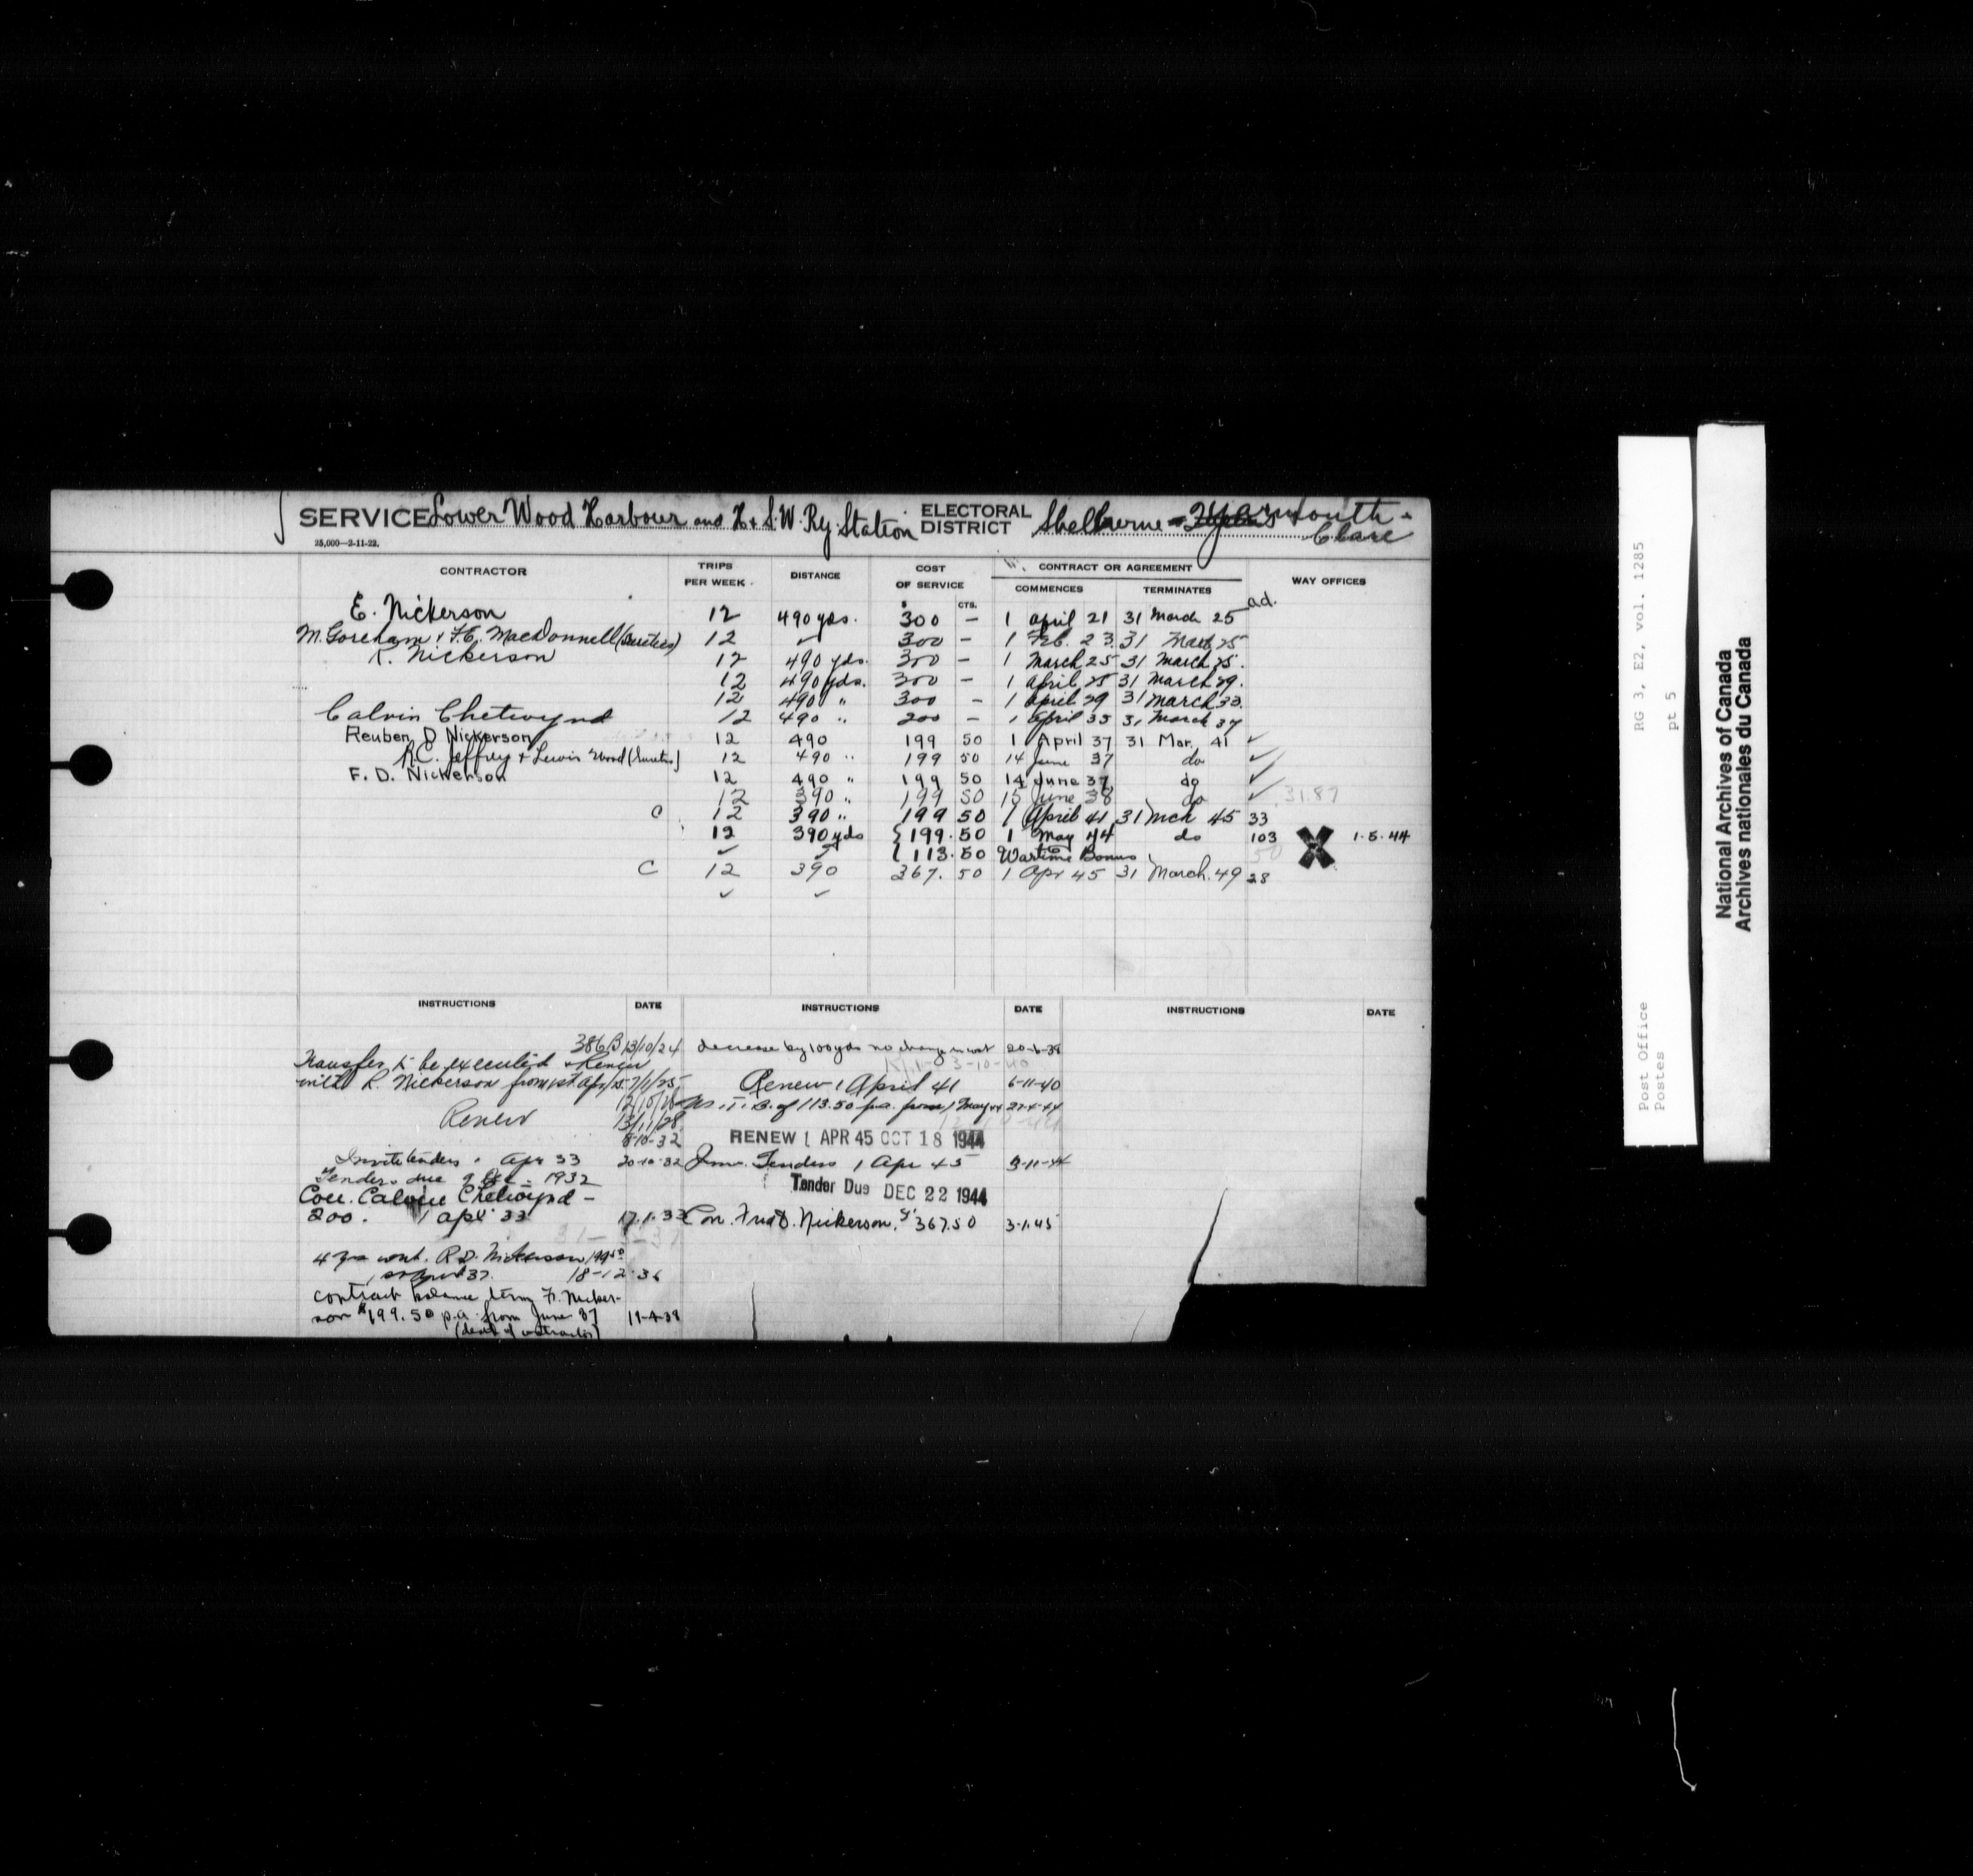 SERVICE Lower Wood Harbour and H. & S. W. Ry. Station ELECTORAL DISTRICT Shelburne - Yarmouth - Clare
25,000—2-11-22.
CONTRACTOR TRIPS PER WEEK. DISTANCE COST OF SERVICE CONTRACT OR AGREEMENT WAY OFFICES
$ CTS. COMMENCES TERMINATES
ad.
E. Nickerson 12 490 yds. 300 — 1 April 21 31 March 25
M. Goreham & F.C. MacDonnell (Sureties) 12 ✓ 300 — 1 Feb. 23 31 March 25
R. Nickerson 12 490 yds. 300 — 1 March 25 31 March 25.
12 490 yds. 300 — 1 April 25 31 March 29.
12 490 " 300 — 1 April 29 31 March 33.
Calvin Chetwynd 12 490 " 200 — 1 April 33 31 March 37
Reuben D Nickerson 12 490 199 50 1 April 37 31 Mar. 41 ✓
R.C. Jeffrey & Lewis Wood (Sureties) 12 490 " 199 50 14 June 37 do ✓
F. D. Nickerson 12 490 " 199 50 14 June 37 do ✓
12 390 " 199 50 15 June 38 do ✓ 31.87
C 12 390 " 199 50 1 April 41 31 Mch 45 33
12 390 yds { 199.50 1 May 44 do 103 X 1-5-44
✓ ✓ { 113.50 Wartime Bonus 50
C 12 390 367.50 1 Apr 45 31 March 49 28
✓ ✓
INSTRUCTIONS DATE INSTRUCTIONS DATE INSTRUCTIONS DATE
386B 13/10/24
Transfer to be executed & Renew
with R. Nickerson from 1st Apr/25 7/1/25
Renew 13/11/28
8-10-32
Invite tenders 1 Apr 33 20-10-32
Tenders due 9 Dec. 1932
Con. Calvin Chetwynd -
200. 1 Apr 33 17.1.33
4 yrs cont. R.D. Nickerson 199.50
1st April 37. 18-12-36
contract balance term F. Nicker-
son $199.50 p.a. from June 37 11-4-38
(death of contractor)
decrease by 100 yds no change in cost 20-6-38
3-10-40
Renew 1 April 41 6-11-40
W. T. B. of 113.50 p.a. from 1 May 44 27-4-44
RENEW 1 APR 45 OCT 18 1944
Inv. Tenders 1 Apr 45 3-11-44
Tender Due DEC 22 1944
Con. Fred D. Nickerson, $367.50 3-1-45
RG 3, E2, vol. 1285
pt 5
Post Office
Postes
National Archives of Canada
Archives nationales du Canada